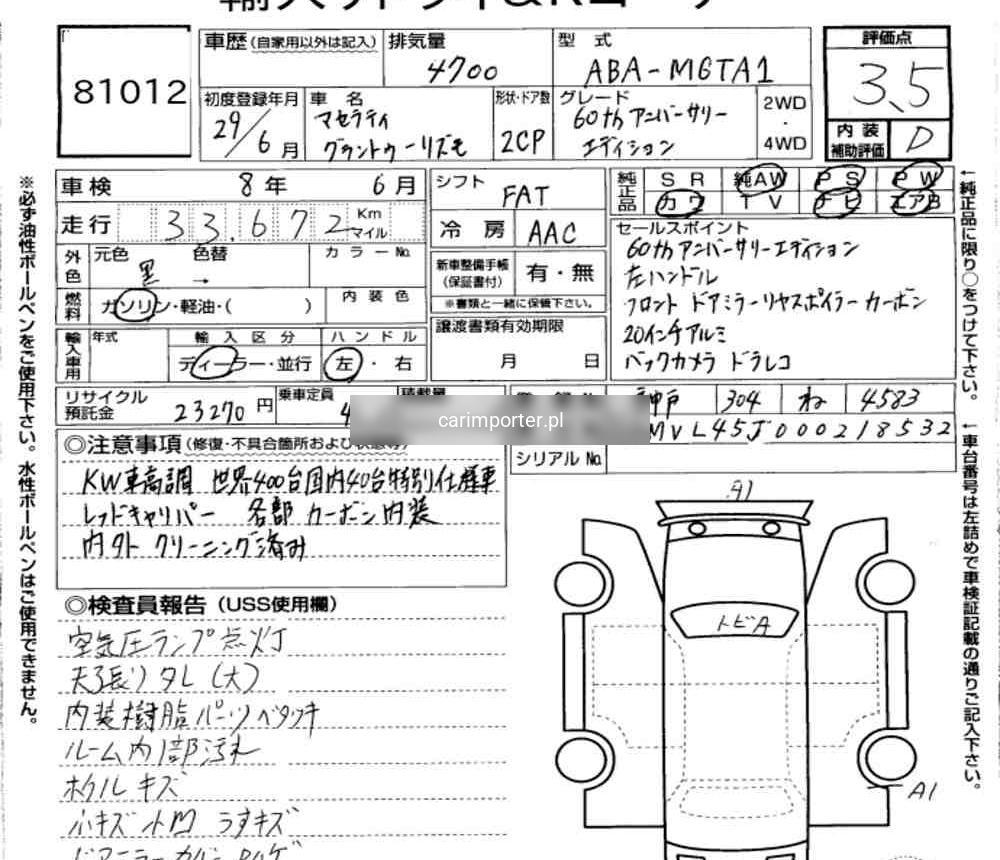 81012
車歴(自家用以外は記入)
排気量 4700
型式 ABA-MGTA1
評価点 3.5
内装補助評価 D
初度登録年月 29/6月
車名 マセラティ グラントゥーリズモ
形状・ドア数 2CP
グレード 60thアニバーサリーエディション
2WD・4WD
車検 8年 6月
シフト FAT
純正品 SR 純AW PS PW
カワ TV ナビ エアB
走行 33.672 Km マイル
冷房 AAC
セールスポイント
60thアニバーサリーエディション
左ハンドル
フロント ドアミラーリヤスポイラー カーボン
20インチアルミ
バックカメラ ドラレコ
外色 元色 黒 → 色替 カラーNo.
新車整備手帳(保証書付) 有・無
※書類と一緒に保管下さい。
燃料 ガソリン・軽油・( )
内装色
譲渡書類有効期限 月 日
輸入車用 年式 輸入区分 ハンドル
ディーラー・並行 左・右
リサイクル預託金 23270円
乗車定員 4
積載量
神戸 304 ね 4583
MVL45J000218532
シリアルNo.
◎注意事項(修復・不具合箇所および
KW車高調 世界400台国内40台特別仕様車
レッドキャリパー 各部 カーボン内装
内外 クリーニング済み
◎検査員報告(USS使用欄)
空気圧ランプ点灯
天張りタレ(大)
内装樹脂パーツベタツキ
ルーム内部汚れ
ホイルキズ
小キズ 小凹 うすキズ
A1
トビA
A1
※必ず油性ボールペンをご使用下さい。水性ボールペンはご使用できません。
←純正品に限り○をつけて下さい。
←車台番号は左詰めで車検証記載の通りご記入下さい。
carimporter.pl